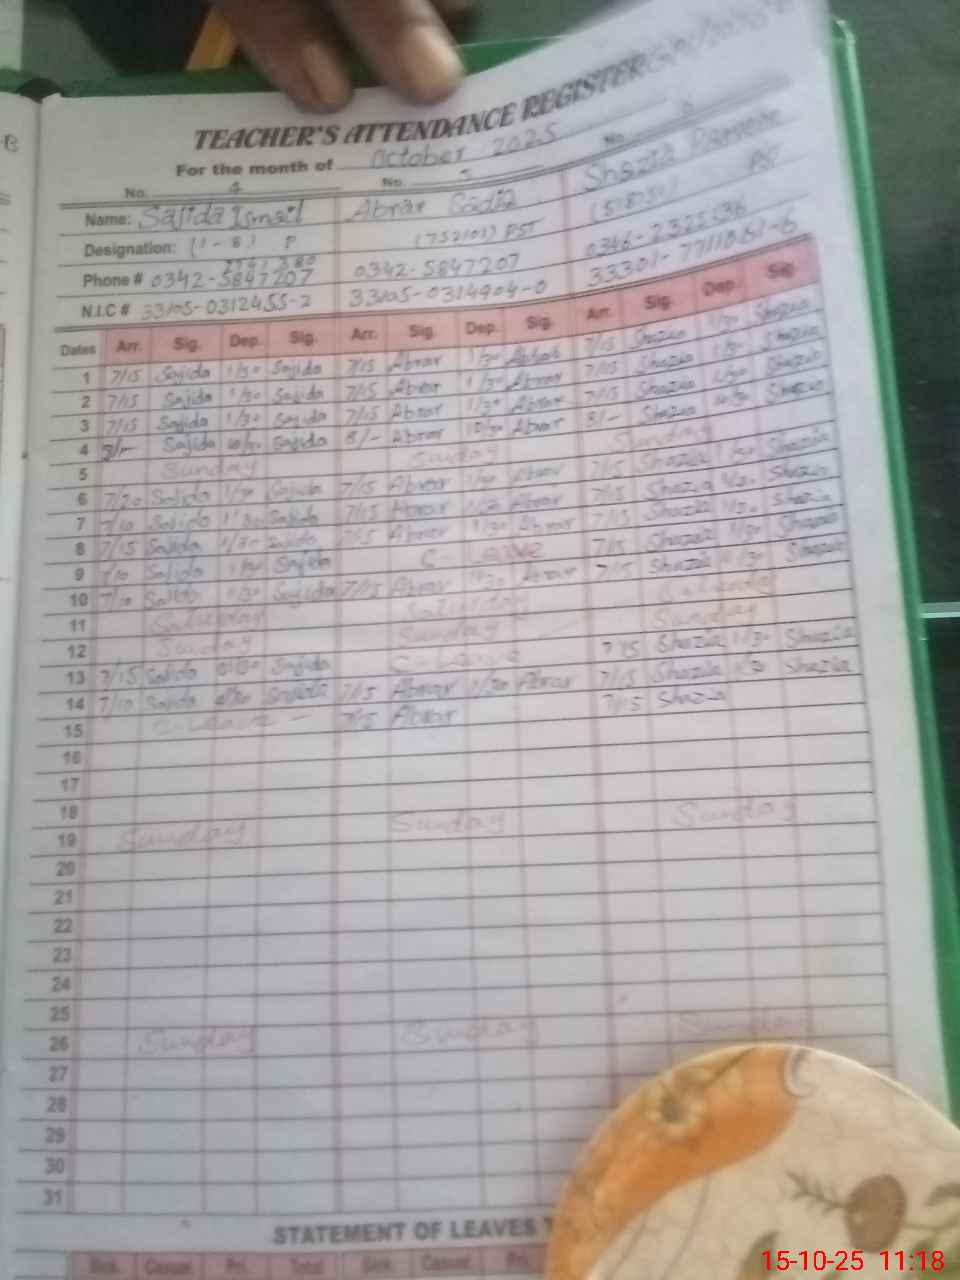 TEACHER'S ATTENDANCE REGISTER
For the month of October 2025
No. 4 No. 5 No. 6
Name: Sajida Ismail Abrar Sadia Shazia Parveen
Designation: (1-8) P (752101) PST (518751) PST
Phone # 0342-5847207 0342-5847207 0346-2325196
N.I.C # 33105-0312455-2 33105-0314904-0 33301-7711061-6
Dates Arr. Sig. Dep. Sig. Arr. Sig. Dep. Sig. Arr. Sig. Dep. Sig.
1 7/15 Sajida 1/30 Sajida 7/15 Abrar 1/30 Abrar 7/15 Shazia 1/30 Shazia
2 7/15 Sajida 1/30 Sajida 7/15 Abrar 1/30 Abrar 7/15 Shazia 1/30 Shazia
3 7/15 Sajida 1/30 Sajida 7/15 Abrar 1/30 Abrar 7/15 Shazia 1/30 Shazia
4 8/- Sajida 10/30 Sajida 8/- Abrar 10/30 Abrar 8/- Shazia 10/30 Shazia
5 Sunday Sunday Sunday
6 7/20 Sajida 1/30 Sajida 7/15 Abrar 1/30 Abrar 7/15 Shazia 1/30 Shazia
7 7/10 Sajida 1/30 Sajida 7/15 Abrar 1/30 Abrar 7/15 Shazia 1/30 Shazia
8 7/15 Sajida 1/30 Sajida 7/15 Abrar 1/30 Abrar 7/15 Shazia 1/30 Shazia
9 7/10 Sajida 1/30 Sajida C-Leave 7/15 Shazia 1/30 Shazia
10 7/10 Sajida 11/30 Sajida 7/15 Abrar 11/30 Abrar 7/15 Shazia 11/30 Shazia
11 Saturday Saturday Saturday
12 Sunday Sunday Sunday
13 7/15 Sajida Sajida C-Leave 7/15 Shazia 1/30 Shazia
14 7/10 Sajida Sajida 7/15 Abrar 1/30 Abrar 7/15 Shazia 1/30 Shazia
15 C-Leave - 7/15 Abrar 7/15 Shazia
16
17
18
19 Sunday Sunday Sunday
20
21
22
23
24
25
26 Sunday Sunday Sunday
27
28
29
30
31
STATEMENT OF LEAVES
Sick Casual Pri. Total Sick Casual Pri.
15-10-25 11:18